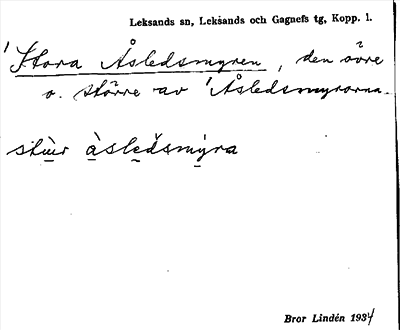 Leksands sn, Leksands och Gagnefs tg, Kopp. l.
'Stora Åsledsmyren, den övre
o. större av 'Åsledsmyrarna.
stùr àsleðsmýra
Bror Lindén 1934